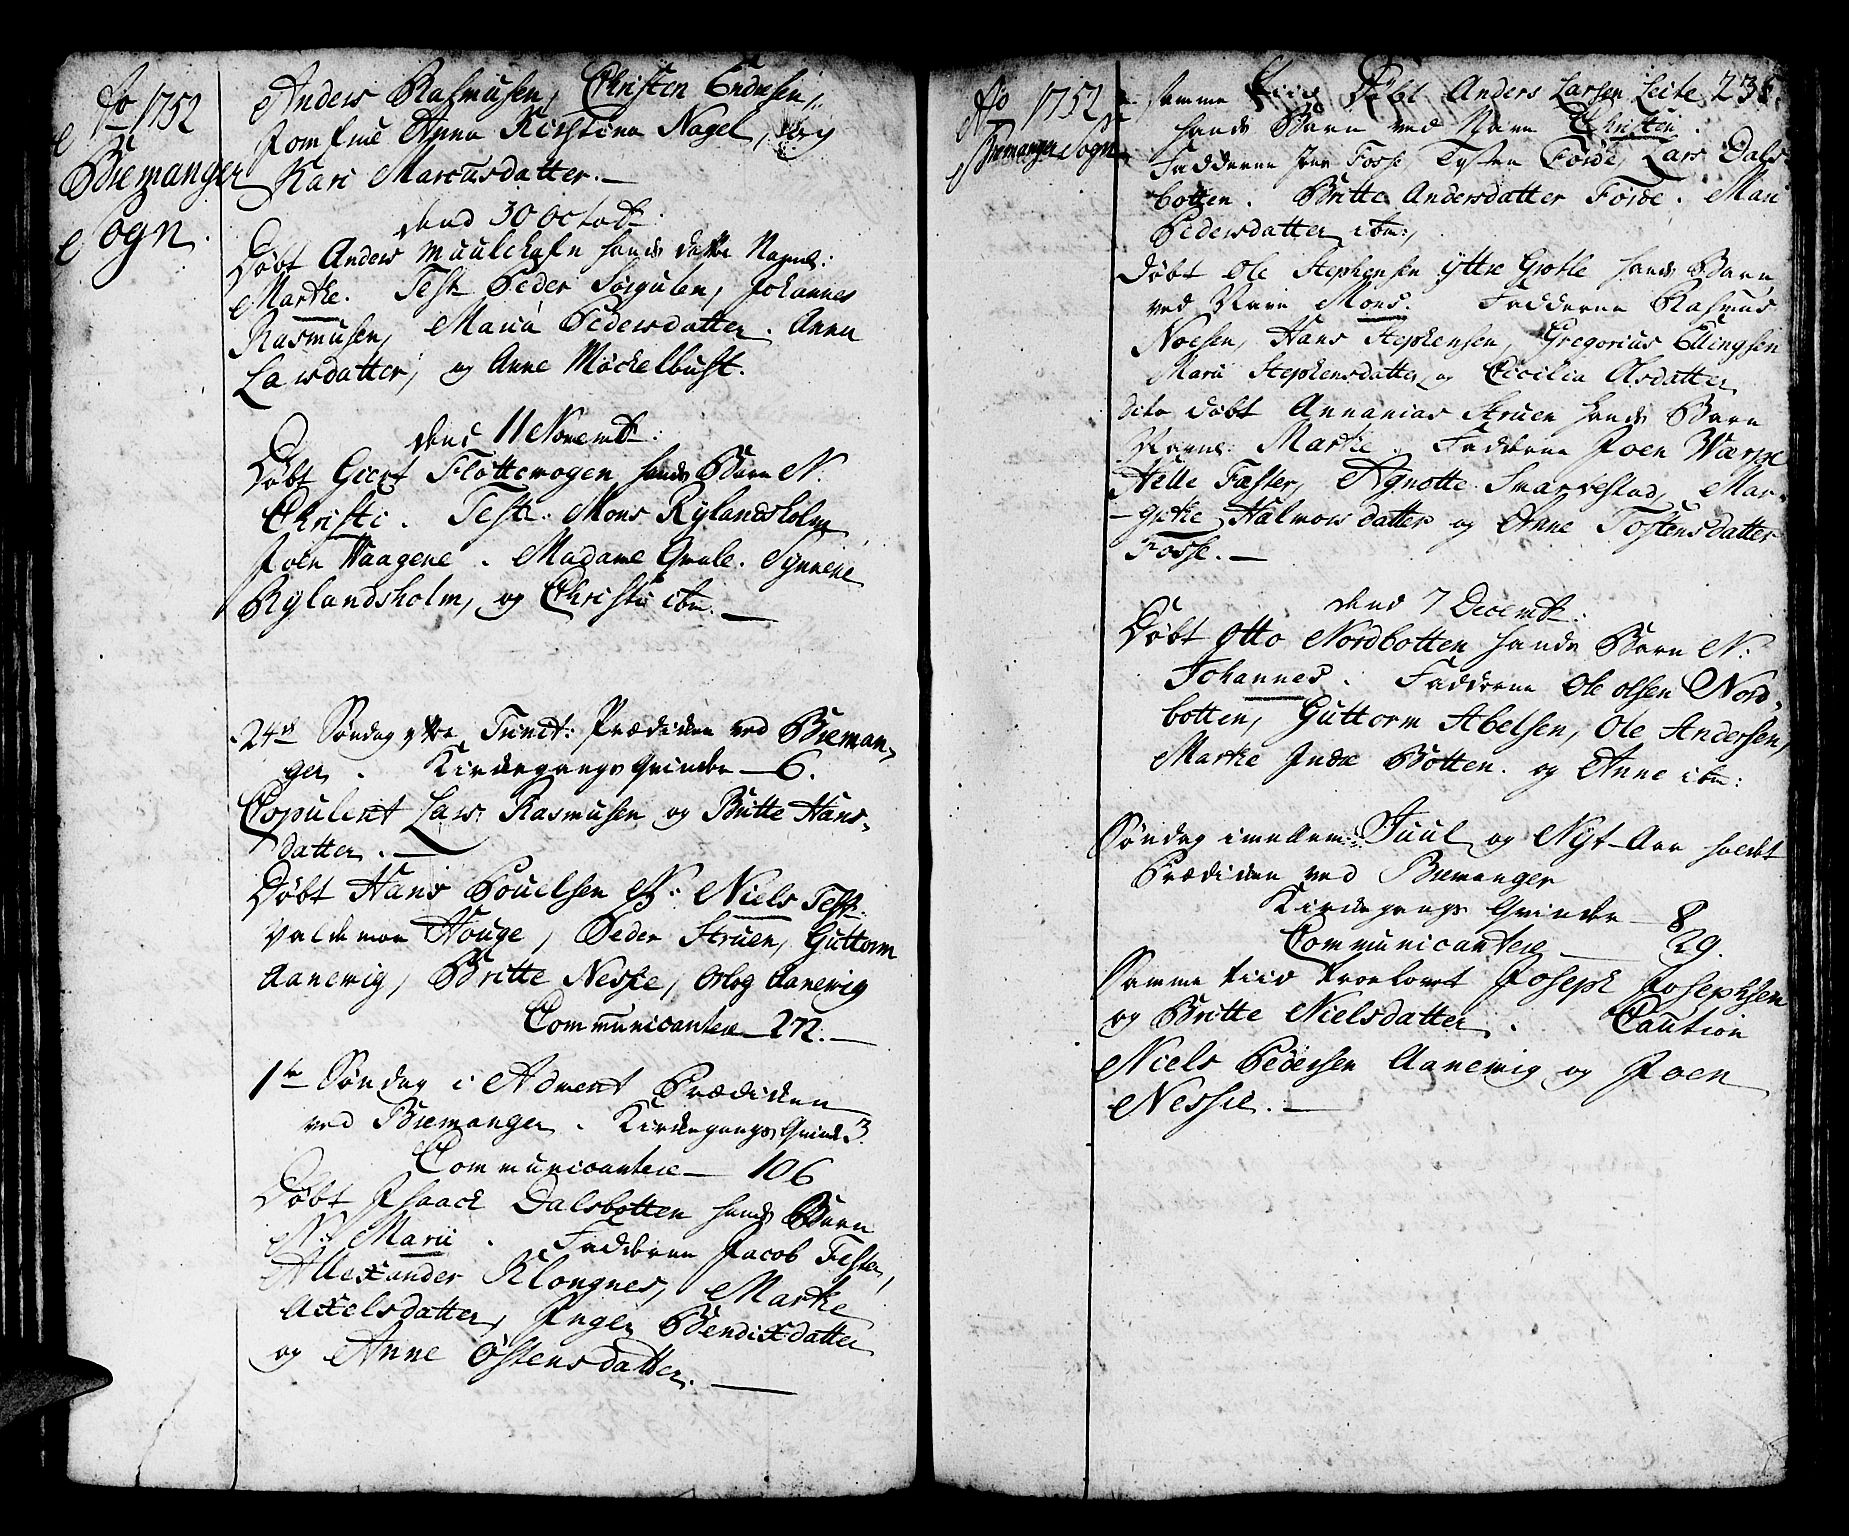 Ao 1752
Bremanger
Sogn.
Anders Rasmusen, Christen Endresen,
Jomfrue Anna Kirstina Nagel, og
Kari Marcusdatter. —
dend 30 octob:
Døbt Anders Muulehafn hands datter Nagnl:
Marthe. Test: Peder Sørgulen, Johannes
Rasmusen, Maria Pedersdatter. Anna
Larsdatter, og Anne Møckelbust.
dend 11 Novemb:
Døbt Geert Flottevogen hands Barn N.
Christi. Test: Mons Rylandsholm
Joen Vaagene. Madame Qvale. Synneve
Rylandsholm, og Christi ibm. —
24de Søndag efter Trinit: Prædiken ved Breman-
ger. Kirkegangs Qvinder — 6.
Copulent Lars Rasmusen og Britte Hans-
datter. —
Døbt Hans Pouelsen N: Niels Test:
Valdemor Houge, Peder Struen, Guttorm
Aanevig, Britte Nesse, Orlog Aanevig
Communicantere — 272. —
1te Søndag i Advent Prædiken
ved Bremanger. Kirkegangs Qvind: 3.
Communicantere — 106
Døbt Isaack Dalsbotten hands Barn
N: Marii. Fadderne Jacob Fester,
Allexander Klongnes, Marthe
Axelsdatter, Inger Bendixdatter
og Anne Østensdatter. —
Ao 1752
Bremanger Sogn
samme Tiid Døbt Anders Larsen Leite 235.
hands Barn ved Navn Christen.
Fadderne Per Fosse, Tosten Førde, Lars Dals-
botten. Britte Andersdatter Førde. Mari
Pedersdatter ibm:,
Døbt Ole Stephensen Yttre Grotle hands Barn
ved Navn Mons. Fadderne Rasmus
Noesen, Hans Stephensen, Gregorius Ellingsen
Marii Stephensdatter og Cicilia Olsdatter
dito døbt Annanias Struen hands Barn
Navnl: Marthe. Fadderne Joen Varpe
Helle Fæster, Agnotte Svarvestad, Mar-
grethe Halmorsdatter og Anne Tostensdatter
Fosse. —
dend 7 Decemb:
Døbt Otto Nordbotten hands Barn N:
Johannes. Fadderne Ole Olsen Nord-
botten, Guttorm Abelsen, Ole Andersen,
Marthe Indre Botten. og Anne ibm:
Søndag imellem Juul og Nyt-Aar holdt
Prædiken ved Bremanger
Kirkegangs Qvinder — 8
Communicantere — 29.
Samme tiid troelovet Joseph Josephsen
og Britte Nielsdatter. Caution
Niels Pedersen Aanevig og Joen
Nesse. —